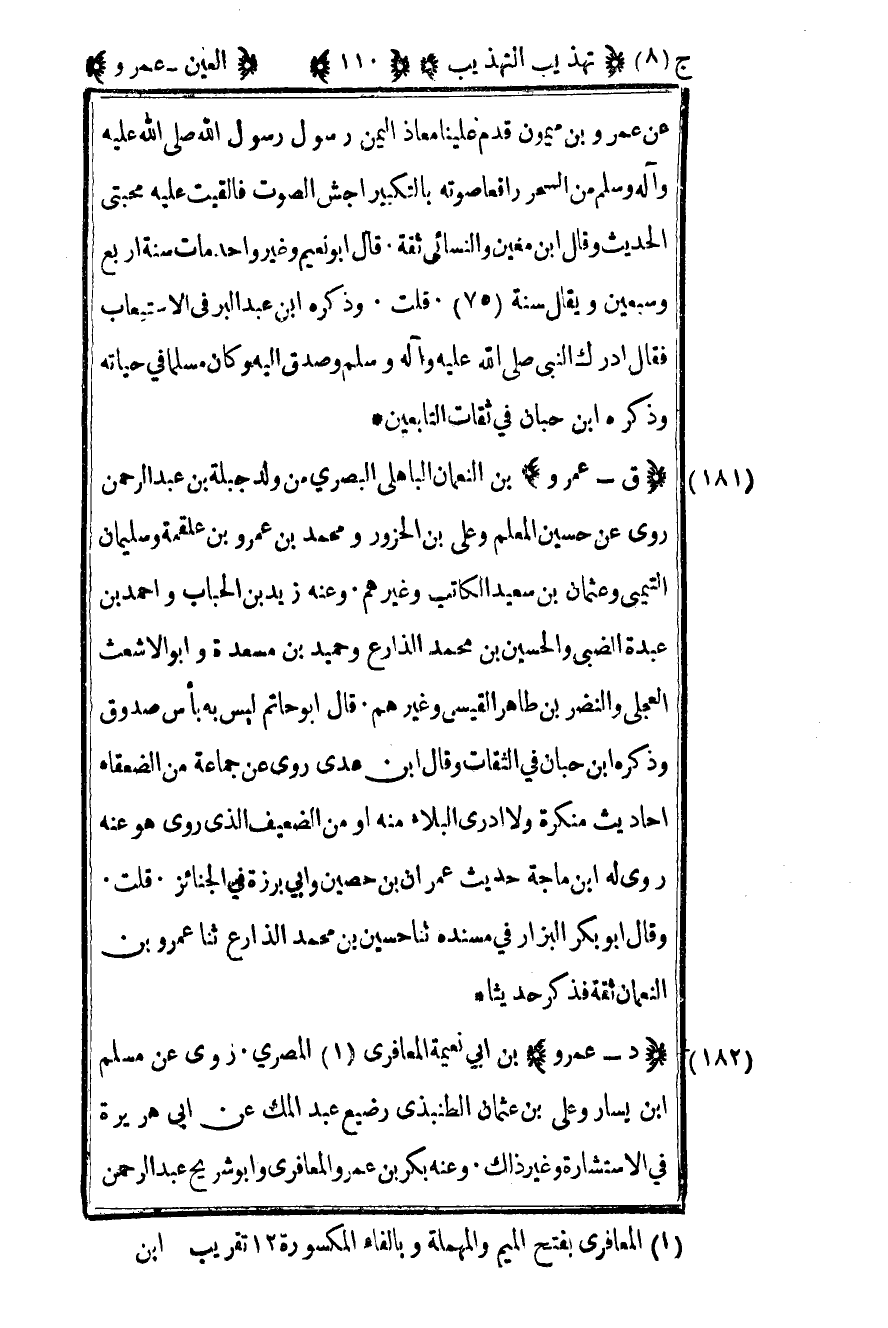 ج (٨) ﴿ تهذيب التهذيب ﴾ ﴿ ١١٠ ﴾ ﴿ العين - عمرو ﴾
عن عمرو بن ميمون قدم علينا معاذ اليمن رسول رسول الله صلى الله عليه
وآله وسلم من السحر رافعا صوته بالتكبير اجش الصوت فالقيت عليه محبتى
الحديث وقال ابن معين والنسائى ثقة ٠ قال ابو نعيم وغير واحد مات سنة اربع
وسبعين ويقال سنة (٧٥) ٠ قلت ٠ وذكره ابن عبد البر فى الاستيعاب
فقال ادرك النبى صلى الله عليه وآله وسلم وصدق اليه وكان مسلما في حياته
وذكره ابن حبان في ثقات التابعين *
(١٨١) ﴿ ق - عمرو ﴾ بن النعمان الباهلى البصري من ولد جبلة بن عبد الرحمن
روى عن حسين المعلم وعلى بن الحزور ومحمد بن عمرو بن علقمة وسليمان
التيمى وعثمان بن سعيد الكاتب وغيرهم ٠ وعنه زيد بن الحباب واحمد بن
عبدة الضبى والحسين بن محمد الذارع وحميد بن مسعدة وابو الاشعث
العجلى والنضر بن طاهر القيسى وغيرهم ٠ قال ابو حاتم ليس به بأس صدوق
وذكره ابن حبان في الثقات وقال ابن عدى روى عن جماعة من الضعفاء
احاديث منكرة ولا ادرى البلاء منه او من الضعيف الذى روى هو عنه
روى له ابن ماجة حديث عمران بن حصين وابي برزة في الجنائز ٠ قلت ٠
وقال ابو بكر البزار في مسنده ثنا حسين بن محمد الذارع ثنا عمرو بن
النعمان ثقة فذكر حديثا *
(١٨٢) ﴿ د - عمرو ﴾ بن ابي نعيمة المعافرى (١) المصري ٠ روى عن مسلم
ابن يسار وعلى بن عثمان الطنبذى رضيع عبد الملك عن ابى هريرة
في الاستشارة وغير ذلك ٠ وعنه بكر بن عمرو المعافرى وابو شريح عبد الرحمن
(١) المعافرى بفتح الميم والمهملة وبالفاء المكسورة ١٢ تقريب ابن